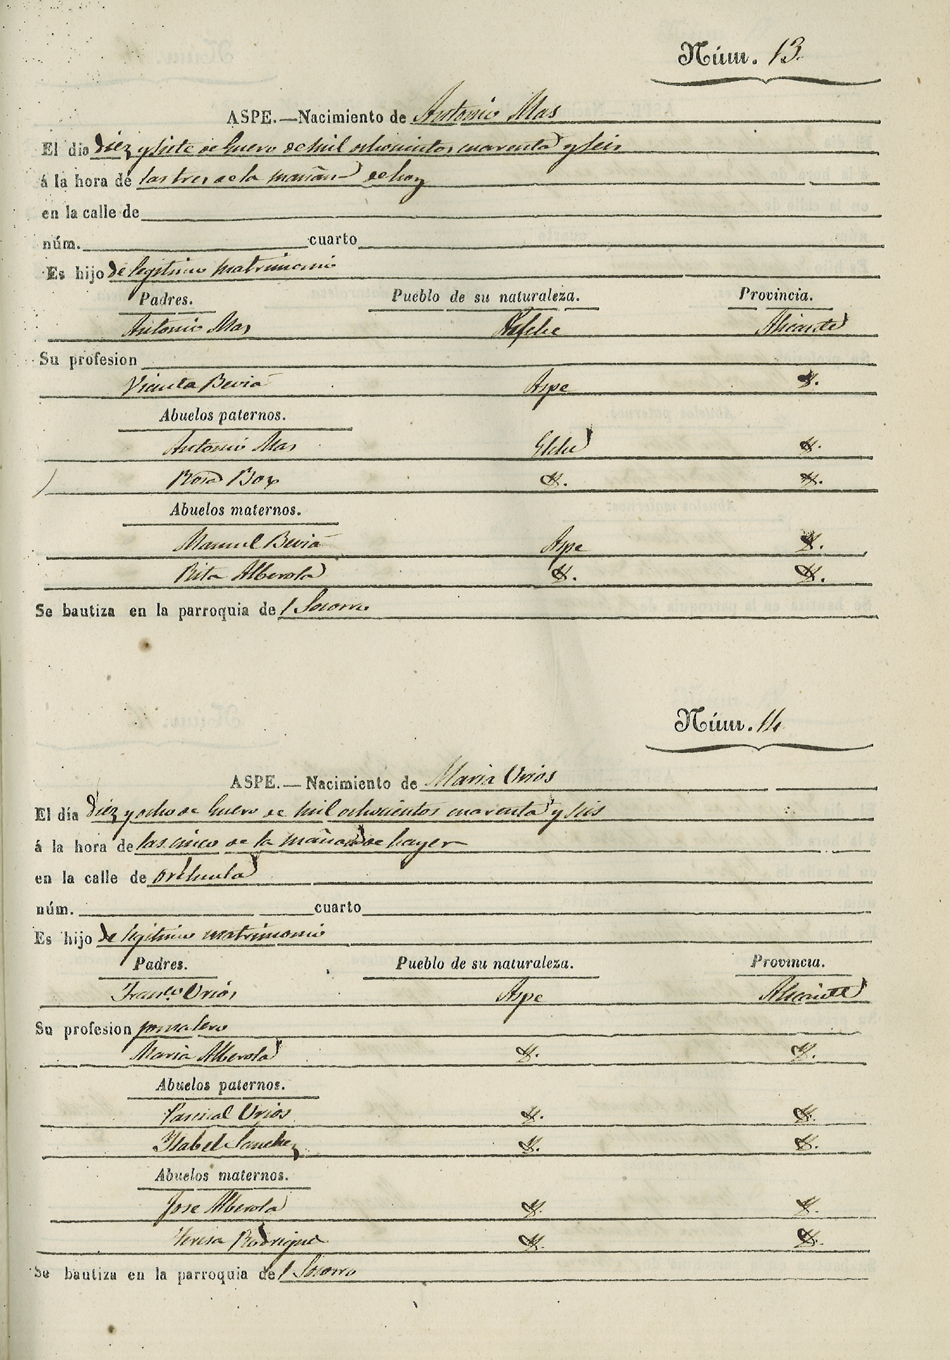 Núm. 13.
ASPE.—Nacimiento de Antonio Mas
El dia diez y siete de Enero de mil ochocientos cuarenta y seis
á la hora de las tres de la mañana de hoy
en la calle de
núm. cuarto
Es hijo de legitimo matrimonio
Padres. Pueblo de su naturaleza. Provincia.
Antonio Mas Alicante
Su profesion
Vicenta Beviá Aspe Y.
Abuelos paternos.
Antonio Mas Elche Y.
Rosa Box Y. Y.
Abuelos maternos.
Manuel Beviá Aspe Y.
Rita Alberola Y. Y.
Se bautiza en la parroquia del Socorro
Núm. 14
ASPE.—Nacimiento de Maria Urios
El día diez y ocho de Enero de mil ochocientos cuarenta y seis
á la hora de las cinco de la mañana de hayer
en la calle de orihuela
núm. cuarto
Es hijo de legitimo matrimonio
Padres. Pueblo de su naturaleza. Provincia.
Franco. Urios Aspe Alicante
Su profesion jornalero
Maria Alberola Y. Y.
Abuelos paternos.
Pascual Urios Y. Y.
Ysabel Sanchez Y. Y.
Abuelos maternos.
Jose Alberola Y. Y.
Teresa Rodriguez Y. Y.
Se bautiza en la parroquia del Socorro